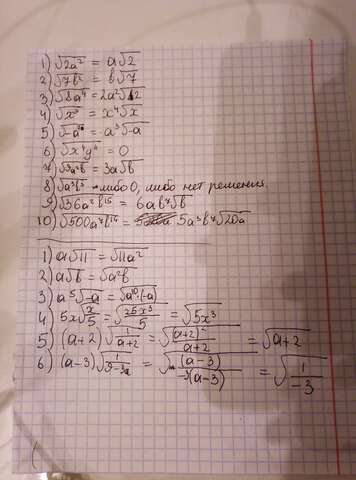 1) √2a² = a√2
2) √7b² = b√7
3) √8a⁴ = 2a²√2
4) √x⁹ = x⁴√x
5) √-a⁷ = -a³√-a
6) √x⁴y⁴ = 0
7) √9a²b = 3a√b
8) √a³b³ - либо 0, либо нет решения.
9) √36a²b¹⁵ = 6ab⁷√b
10) √500a⁷b¹⁴ = 5a³b⁷√20a
1) a√11 = √11a²
2) a√b = √a²b
3) a⁵√-a = √a¹⁰·(-a)
4) 5x√x/5 = √25x³/5 = √5x³
5) (a+2)√1/a+2 = √(a+2)²/a+2 = √a+2
6) (a-3)√1/9-3a = √(a-3)/-3(a-3) = √1/-3